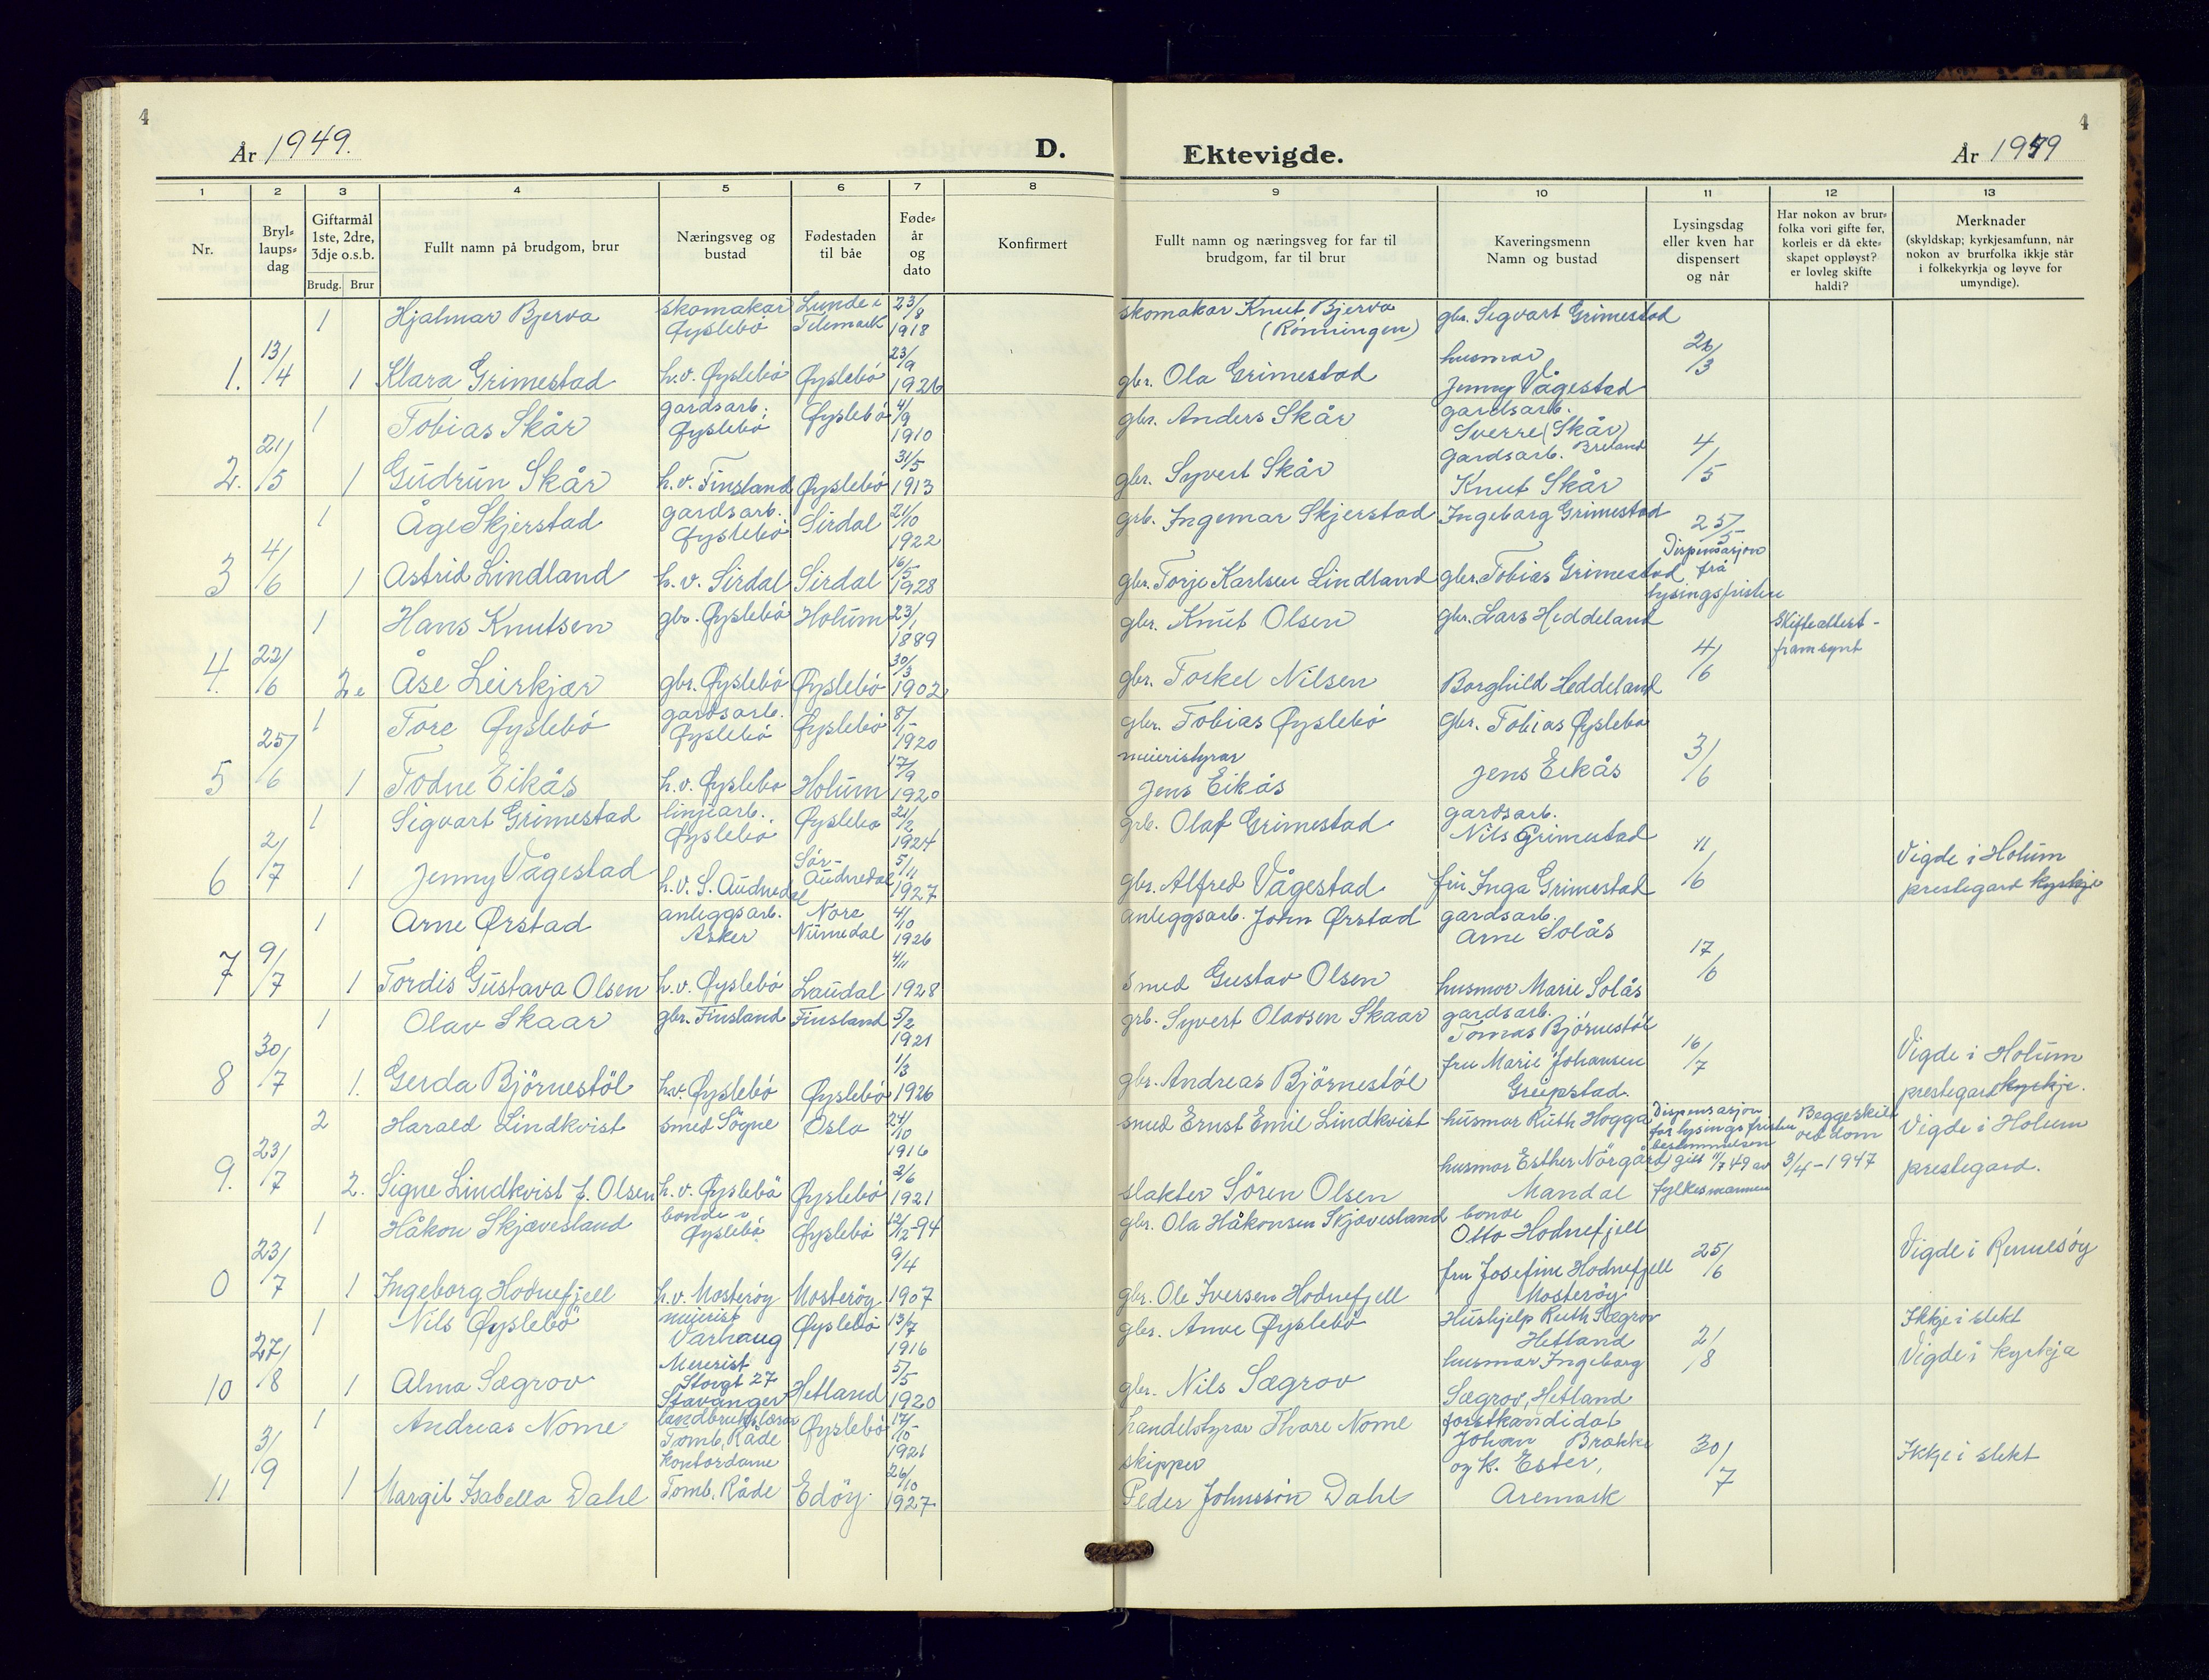 4
År 1949.
D.
Ektevigde.
År 1949
4
1 2 3 4 5 6 7 8 9 10 11 12 13
Nr.
Bryllaupsdag
Giftarmål 1ste, 2dre, 3dje o.s.b.
Brudg. Brur
Fullt namn på brudgom, brur
Næringsveg og bustad
Fødestaden til båe
Fødeår og dato
Konfirmert
Fullt namn og næringsveg for far til brudgom, far til brur
Kaveringsmenn Namn og bustad
Lysingsdag eller kven har dispensert og når
Har nokon av brurfolka vori gifte før, korleis er då ekteskapet oppløyst? er lovleg skifte haldi?
Merknader (skyldskap; kyrkjesamfunn, når nokon av brurfolka ikkje står i folkekyrkja og løyve for umyndige).
1 Hjalmar Bjerva skomakar Øyslebö Lunde i Telemark 23/8 1918 skomakar Knut Bjerva (Rönningen) gbr. Sigvart Grimestad
1. 13/4 1 Klara Grimestad h.v. Øyslebö Øyslebö 23/9 1926 gbr. Ola Grimestad husmor Jenny Vågestad 26/3
1 Tobias Skår gardsarb. Øyslebö Øyslebö 4/9 1910 gbr. Anders Skår gardsarb. Sverre (Skår) Breland
2. 21/5 1 Gudrun Skår h.v. Finsland Øyslebö 31/5 1913 gbr. Syvert Skår gardsarb. Knut Skår 4/5
1 Åge Skjerstad gardsarb. Øyslebö Sirdal 21/10 1922 grb. Ingemar Skjerstad Ingeborg Grimestad 25/5
3 4/6 1 Astrid Lindland h.v. Sirdal Sirdal 16/5 1928 gbr. Torje Karlsen Lindland gbr. Tobias Grimestad Dispensasjon frå lysingsfristen
1 Hans Knutsen gbr. Øyslebö Holum 23/1 1889 gbr. Knut Olsen gbr. Lars Heddeland Skifteattest framsynt
4. 22/6 2e Åse Leirkjær gbr. Øyslebö Øyslebö 30/3 1902 gbr. Torkel Nilsen Borghild Heddeland 4/6
1 Tore Øyslebö gardsarb. Øyslebö Øyslebö 8/1 1920 gbr. Tobias Øyslebö gbr. Tobias Øyslebö
5 25/6 1 Todne Eikås h.v. Øyslebö Holum 17/9 1920 meieristyrar Jens Eikås Jens Eikås 3/6
1 Sigvart Grimestad linjearb. Øyslebö Øyslebö 21/2 1924 grb. Olaf Grimestad gardsarb. Nils Grimestad
6 2/7 1 Jenny Vågestad h.v. S. Audnedal Sör-Audnedal 5/11 1927 gbr. Alfred Vågestad fru Inga Grimestad 11/6 Vigde i Holum prestegard kyrkje
1 Arne Ørstad anleggsarb. Asker Nore Numedal 4/10 1926 anleggsarb. John Ørstad gardsarb. Arne Solås
7 9/7 1 Tordis Gustava Olsen h.v. Øyslebö Laudal 4/11 1928 smed Gustav Olsen husmor Marie Solås 17/6
1 Olav Skaar gbr. Finsland Finsland 5/2 1921 grb. Syvert Olavsen Skaar gardsarb. Tomas Björnestöl
8 30/7 1. Gerda Björnestöl h.v. Øyslebö Øyslebö 1/3 1926 gbr. Andreas Björnestöl fru Marie Johansen Greipstad 16/7 Vigde i Holum prestegard kyrkje.
2 Harald Lindkvist smed Sögne Oslo 24/10 1916 smed Ernst Emil Lindkvist husmor Ruth Hogga Dispensasjon for lysingsfristen bestemmelsen Begge skilt ved dom Vigde i Holum
9. 23/7 2. Signe Lindkvist f. Olsen h.v. Øyslebö Øyslebö 2/6 1921 slakter Sören Olsen husmor Esther Nörgård Mandal gitt 11/7 49 av fylkesmannen 3/4-1947 prestegard.
1 Håkon Skjævesland bonde i Øyslebö Øyslebö 12/2-94 gbr. Ola Håkonsen Skjævesland bonde Otto Hodnefjell
0 23/7 1 Ingeborg Hodnefjell h.v. Mosteröy Mosteröy 9/4 1907 gbr. Ole Iversen Hodnefjell fru Josefine Hodnefjell Mosteröy 25/6 Vigde i Rennesöy
1 Nils Øyslebö meierist Varhaug Øyslebö 13/7 1916 gbr. Anve Øyslebö Hushjelp Ruth Sægrov Hetland Ikkje i slekt
10 27/8 1 Alma Sægrov Meierist Storgt 27 Stavanger Hetland 5/5 1920 gbr. Nils Sægrov husmor Ingeborg Sægrov, Hetland 2/8 Vigde i kyrkja
1 Andreas Nome landbrukslærar Tomb, Råde Øyslebö 17/10 1921 handelstyrar Thore Nome forstkandidat Johan Brække
11 3/9 1 Margit Isabella Dahl kontordame Tomb, Råde Edöy 26/10 1927 skipper Peder Johnssön Dahl og k. Ester, Aremark 30/7 Ikkje i slekt